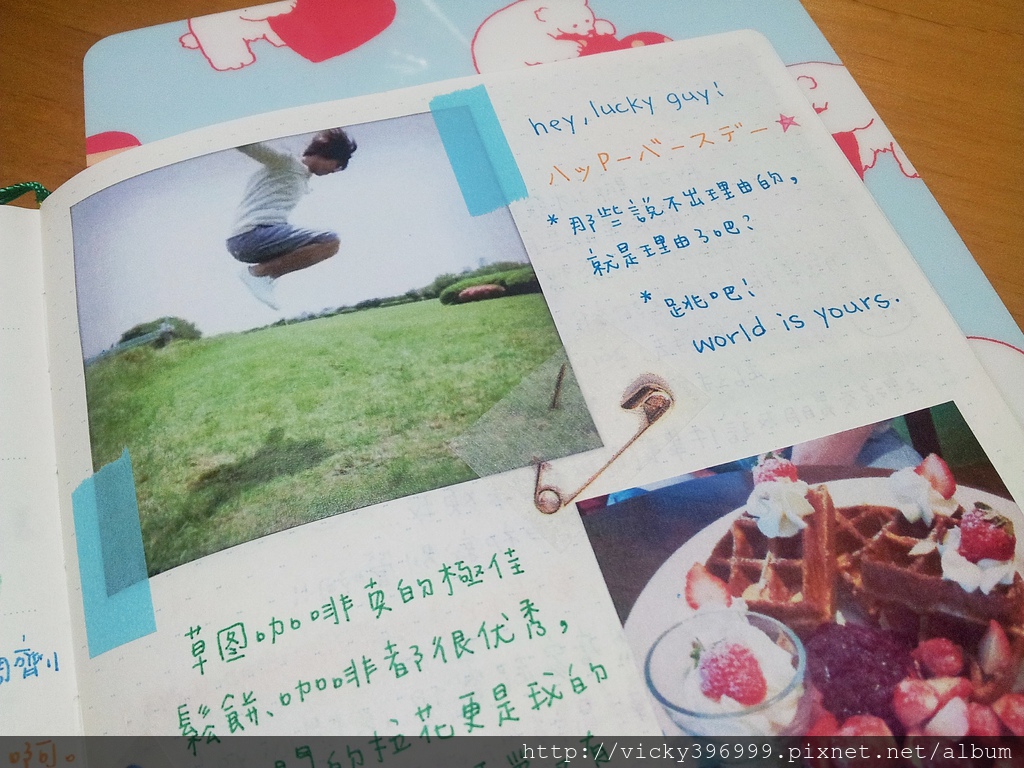 hey, lucky guy!
ハッPーバースデー
*那些說不出理由的,
就是理由了吧?
*跳吧!
world is yours.
草图咖啡真的極佳
鬆餅、咖啡都很优秀,
的拉花更是我的
齊
呵。
http://vicky396999.pixnet.net/album